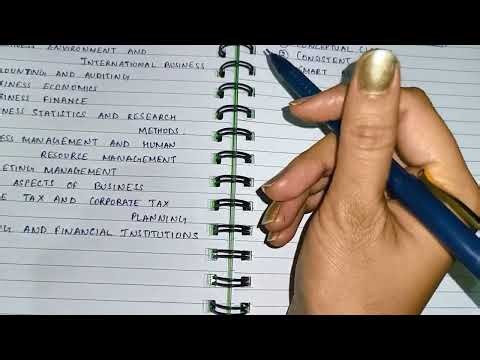 ENVIRONMENT AND
INTERNATIONAL BUSINESS
AND AUDITING
ECONOMICS
FINANCE
STATISTICS AND RESEARCH
METHODS.
MANAGEMENT AND HUMAN
RESOURCE MANAGEMENT
MANAGEMENT
ASPECTS OF BUSINESS
TAX AND CORPORATE TAX
PLANNING
AND FINANCIAL INSTITUTIONS
CONCEPTUAL
② CONSISTENT
SMART